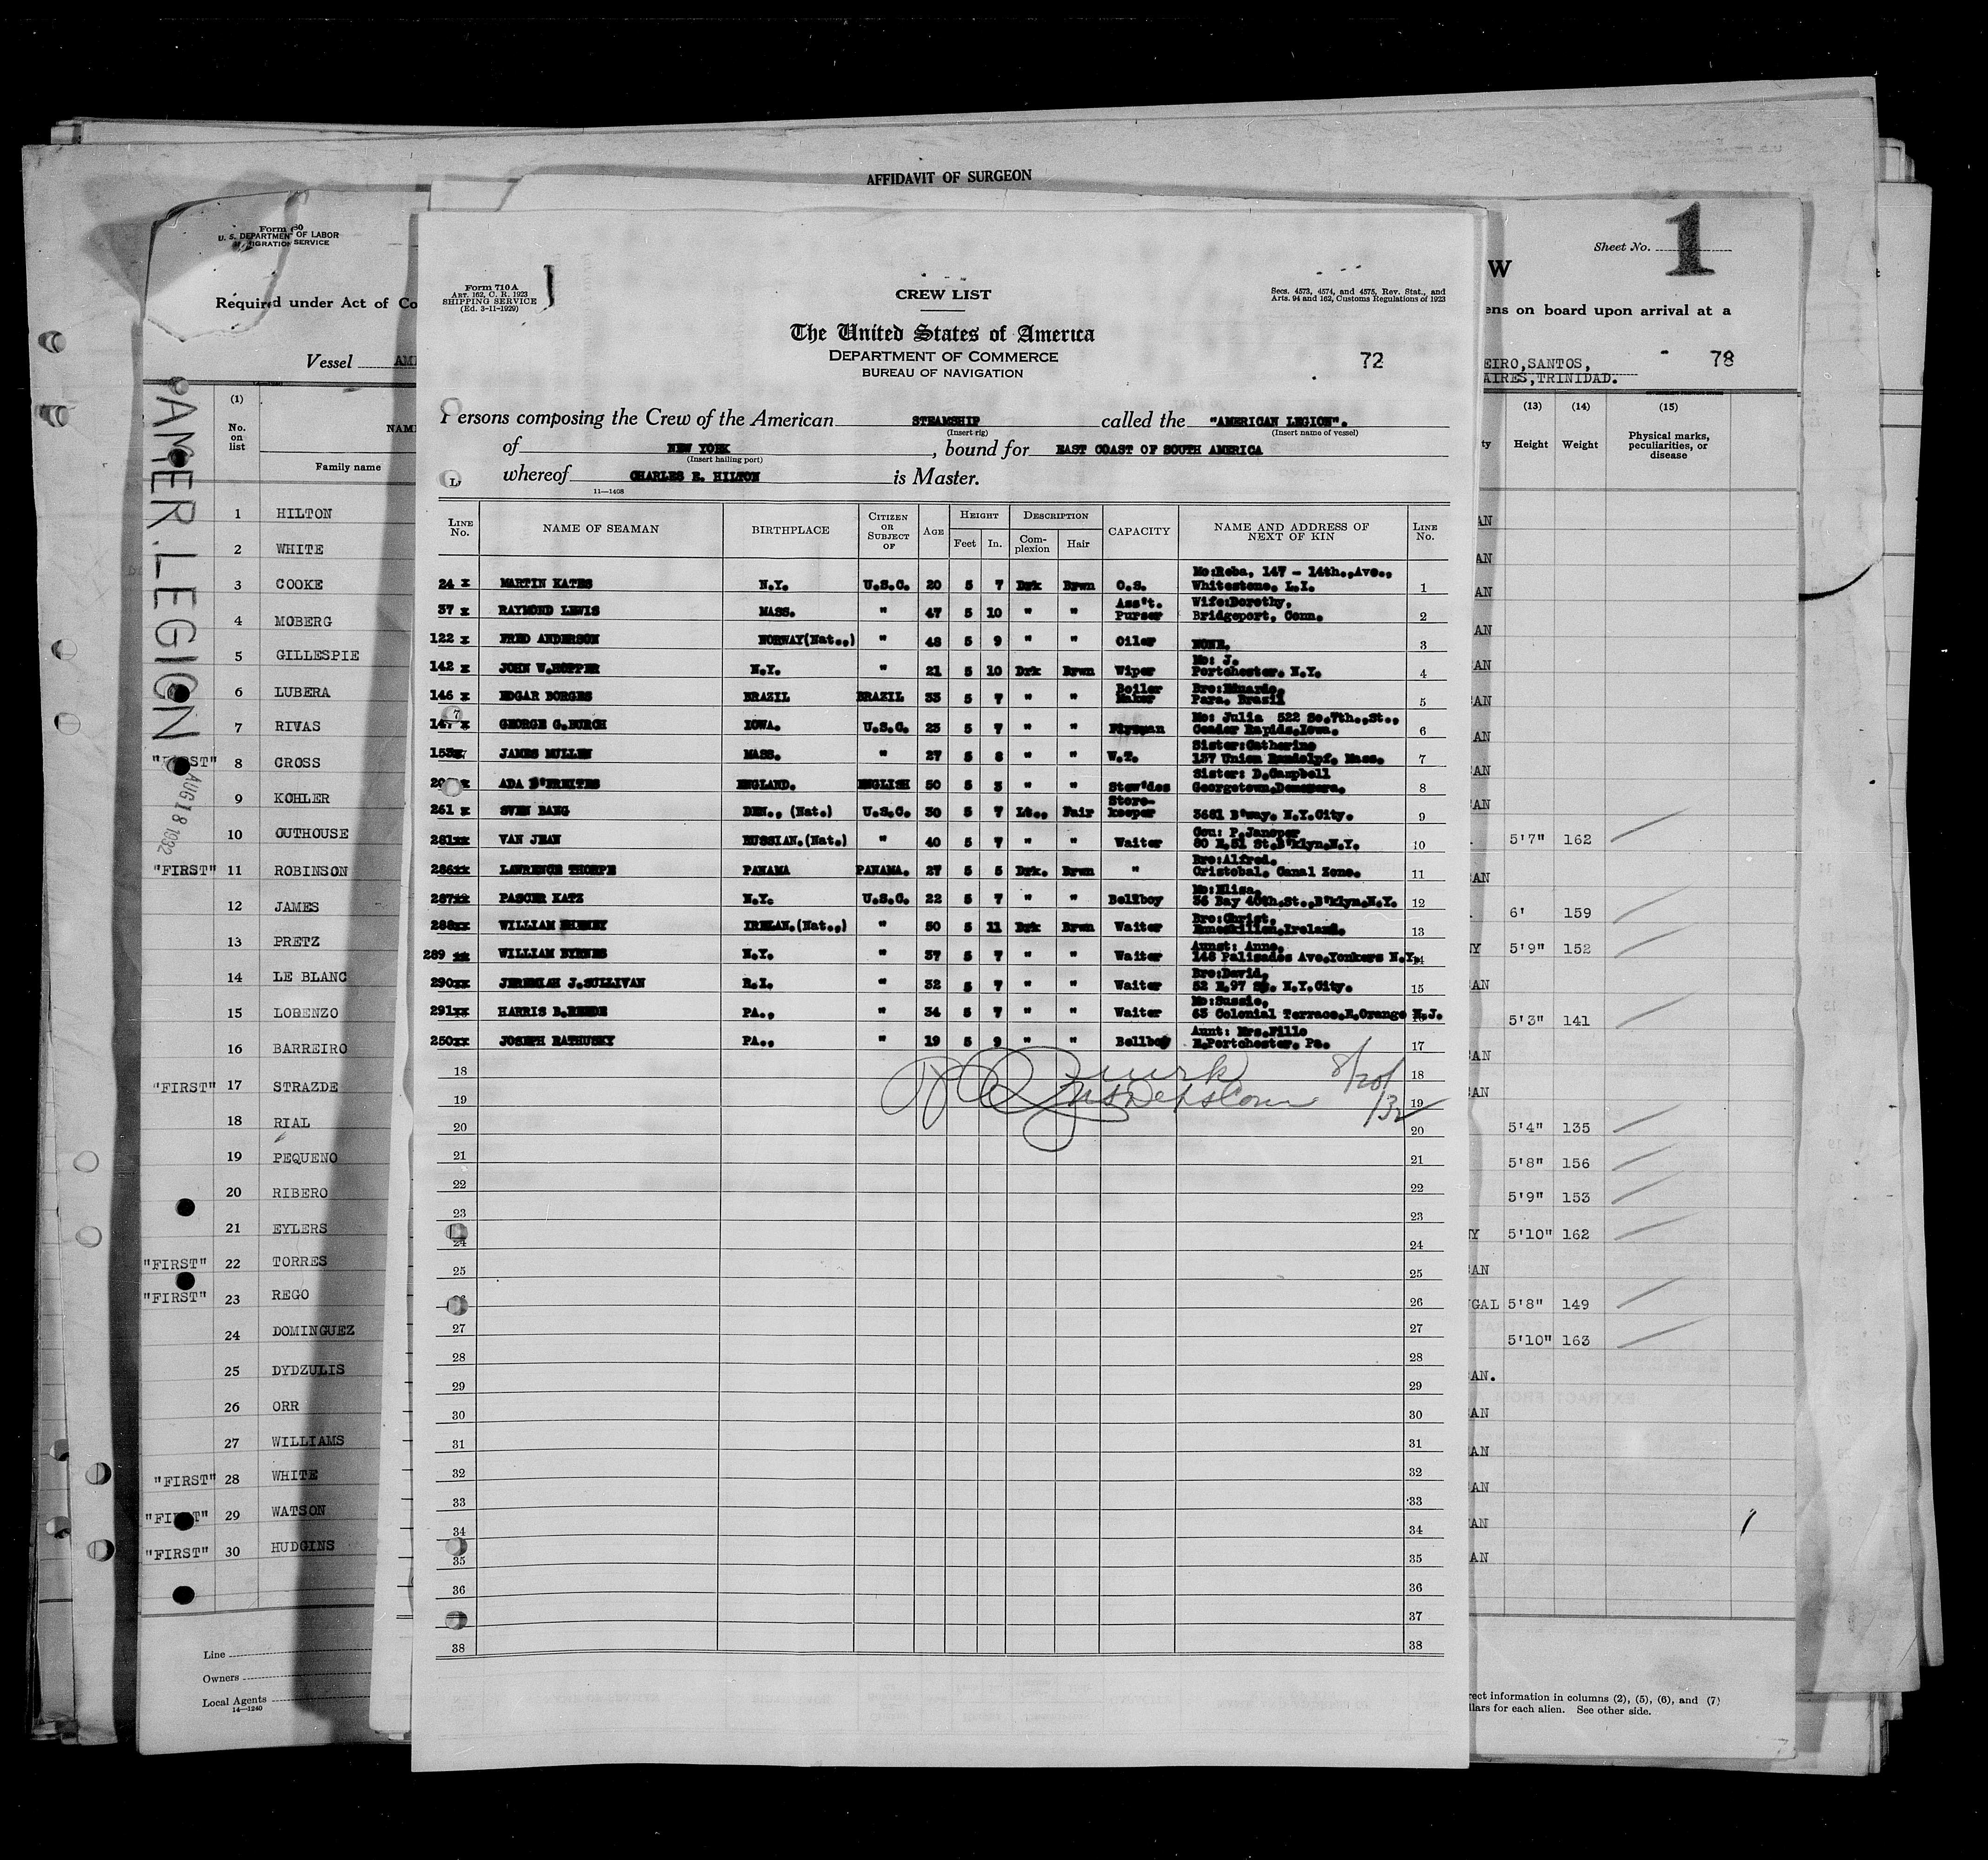 AFFIDAVIT OF SURGEON
Form 680
U. S. DEPARTMENT OF LABOR
IMMIGRATION SERVICE
Required under Act of Co
Vessel AM
(1)
No. on list
NAM
Family name
AMER. LEGION
AUG 18 1932
1 HILTON
2 WHITE
3 COOKE
4 MOBERG
5 GILLESPIE
6 LUBERA
7 RIVAS
"FIRST" 8 CROSS
9 KOHLER
10 OUTHOUSE
"FIRST" 11 ROBINSON
12 JAMES
13 PRETZ
14 LE BLANC
15 LORENZO
16 BARREIRO
"FIRST" 17 STRAZDE
18 RIAL
19 PEQUENO
20 RIBERO
21 EYLERS
"FIRST" 22 TORRES
"FIRST" 23 REGO
24 DOMINGUEZ
25 DYDZULIS
26 ORR
27 WILLIAMS
"FIRST" 28 WHITE
"FIRST" 29 WATSON
"FIRST" 30 HUDGINS
Line
Owners
Local Agents
14—1240
Form 710A
ART. 162, C. R. 1923
SHIPPING SERVICE
(Ed. 3-11-1929)
CREW LIST
Secs. 4573, 4574, and 4575, Rev. Stat., and
Arts. 94 and 162, Customs Regulations of 1923
The United States of America
DEPARTMENT OF COMMERCE
BUREAU OF NAVIGATION
72
Persons composing the Crew of the American STEAMSHIP called the "AMERICAN LEGION".
(Insert rig) (Insert name of vessel)
of NEW YORK, bound for EAST COAST OF SOUTH AMERICA
(Insert hailing port)
whereof CHARLES E. HILTON is Master.
11—1408
LINE No. NAME OF SEAMAN BIRTHPLACE CITIZEN OR SUBJECT OF AGE HEIGHT Feet In. DESCRIPTION Complexion Hair CAPACITY NAME AND ADDRESS OF NEXT OF KIN LINE No.
24 x MARTIN KATES N.Y. U.S.C. 20 5 7 Drk Brwn O.S. Mo:Reba, 147 - 14th.,Ave., Whitestone. L.I. 1
37 x RAYMOND LEWIS MASS. " 47 5 10 " " Ass't. Purser Wife:Dorothy, Bridgeport, Conn. 2
122 x FRED ANDERSON NORWAY(Nat.,) " 48 5 9 " " Oiler NONE. 3
142 x JOHN W.HOPPER N.Y. " 21 5 10 Drk Brwn Wiper Mo: J. Portchester. N.Y. 4
146 x EDGAR BORGES BRAZIL BRAZIL 33 5 7 " " Boiler Maker Bro:Eduardo, Para. Brazil 5
147 x GEORGE G.BURCH IOWA. U.S.C. 23 5 7 " " Mo: Julia 522 So.7th.,St., Ceader Rapids.Iowa. 6
153x JAMES MULLEN MASS. " 27 5 8 " " W.T. Sister:Catherine 137 Union Randolpf. Mass. 7
ADA D'FREITES ENGLAND. ENGLISH 50 5 3 " " Stew'des Sister: D.Campbell Georgetown.Demerara. 8
261 x SVEN BANG DEN., (Nat.) U.S.C. 30 5 7 Lt., Fair Store-keeper 3681 B'way. N.Y.City. 9
281xx VAN JEAN RUSSIAN.(Nat.) " 40 5 7 " " Waiter Cou: P.Jansper 80 E.51 St.B'klyn.N.Y. 10
286xx LAWRENCE THORPE PANAMA PANAMA. 27 5 5 Drk. Brwn " Bro:Alfred. Cristobal. Canal Zone. 11
287xx PASCER KATZ N.Y. U.S.C. 22 5 7 " " Bellboy Mo:Elisa, 36 Bay 40th.St.,B'klyn.N.Y. 12
288xx WILLIAM IRELAN.(Nat.,) " 50 5 11 Drk Brwn Waiter Bro:Christ, Enneskillen.Ireland. 13
289 xx WILLIAM BYRNES N.Y. " 37 5 7 " " Waiter Aunst: Anne, 148 Palisades Ave.Yonkers N.Y. 14
290xx JEREMIAH J.SULLIVAN R.I. " 32 5 7 " " Waiter Bro:David, 52 E.97 St. N.Y.City. 15
291xx HARRIS B.REEDE PA., " 34 5 7 " " Waiter Mo:Sussie, 63 Colonial Terrace.E.Orange N.J.
250xx JOSEPH RATHUSKY PA., " 19 5 9 " " Bellboy Aunt: Mrs.Fillo E.Portchester. Pa. 17
18 18
8/20/32
19 19
20 20
21 21
22 22
23 23
24 24
25 25
26 26
27 27
28 28
29 29
30 30
31 31
32 32
33 33
34 34
35 35
36 36
37 37
38 38
W
Sheet No. 1
ens on board upon arrival at a
EIRO,SANTOS, 78
AIRES,TRINIDAD.
(13) (14) (15)
ty Height Weight Physical marks, peculiarities, or disease
AN
AN
AN
AN
AN
AN
AN
AN
AN
5'7" 162
AN
6' 159
NY 5'9" 152
AN
5'3" 141
AN
AN
5'4" 135
5'8" 156
5'9" 153
NY 5'10" 162
AN
GAL 5'8" 149
5'10" 163
AN.
AN
AN
AN
AN
AN
rect information in columns (2), (5), (6), and (7)
llars for each alien. See other side.